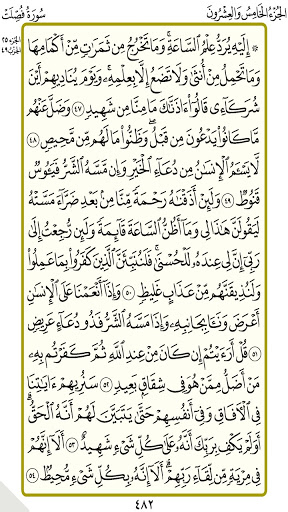 سورة فصلت
الجزء الخامس والعشرون
الجزء ٢٥
الحزب ٤٩
۞ إِلَيْهِ يُرَدُّ عِلْمُ السَّاعَةِ ۚ وَمَا تَخْرُجُ مِن ثَمَرَٰتٍ مِّنْ أَكْمَامِهَا
وَمَا تَحْمِلُ مِنْ أُنثَىٰ وَلَا تَضَعُ إِلَّا بِعِلْمِهِ ۚ وَيَوْمَ يُنَادِيهِمْ أَيْنَ
شُرَكَآءِى قَالُوٓا۟ ءَاذَنَّٰكَ مَا مِنَّا مِن شَهِيدٍ ٤٧ وَضَلَّ عَنْهُم
مَّا كَانُوا۟ يَدْعُونَ مِن قَبْلُ ۖ وَظَنُّوا۟ مَا لَهُم مِّن مَّحِيصٍ ٤٨
لَّا يَسْـَٔمُ الْإِنسَٰنُ مِن دُعَآءِ الْخَيْرِ وَإِن مَّسَّهُ الشَّرُّ فَيَـُٔوسٌ
قَنُوطٌ ٤٩ وَلَئِنْ أَذَقْنَٰهُ رَحْمَةً مِّنَّا مِنۢ بَعْدِ ضَرَّآءَ مَسَّتْهُ
لَيَقُولَنَّ هَٰذَا لِى وَمَآ أَظُنُّ السَّاعَةَ قَآئِمَةً وَلَئِن رُّجِعْتُ إِلَىٰ
رَبِّىٓ إِنَّ لِى عِندَهُۥ لَلْحُسْنَىٰ ۚ فَلَنُنَبِّئَنَّ الَّذِينَ كَفَرُوا۟ بِمَا عَمِلُوا۟
وَلَنُذِيقَنَّهُم مِّنْ عَذَابٍ غَلِيظٍ ٥٠ وَإِذَآ أَنْعَمْنَا عَلَى الْإِنسَٰنِ
أَعْرَضَ وَنَـَٔا بِجَانِبِهِۦ وَإِذَا مَسَّهُ الشَّرُّ فَذُو دُعَآءٍ عَرِيضٍ
٥١ قُلْ أَرَءَيْتُمْ إِن كَانَ مِنْ عِندِ اللَّهِ ثُمَّ كَفَرْتُم بِهِۦ
مَنْ أَضَلُّ مِمَّنْ هُوَ فِى شِقَاقٍۭ بَعِيدٍ ٥٢ سَنُرِيهِمْ ءَايَٰتِنَا
فِى الْءَافَاقِ وَفِىٓ أَنفُسِهِمْ حَتَّىٰ يَتَبَيَّنَ لَهُمْ أَنَّهُ الْحَقُّ ۗ
أَوَلَمْ يَكْفِ بِرَبِّكَ أَنَّهُۥ عَلَىٰ كُلِّ شَىْءٍ شَهِيدٌ ٥٣ أَلَآ إِنَّهُمْ
فِى مِرْيَةٍ مِّن لِّقَآءِ رَبِّهِمْ ۗ أَلَآ إِنَّهُۥ بِكُلِّ شَىْءٍ مُّحِيطٌۢ ٥٤
٤٨٢